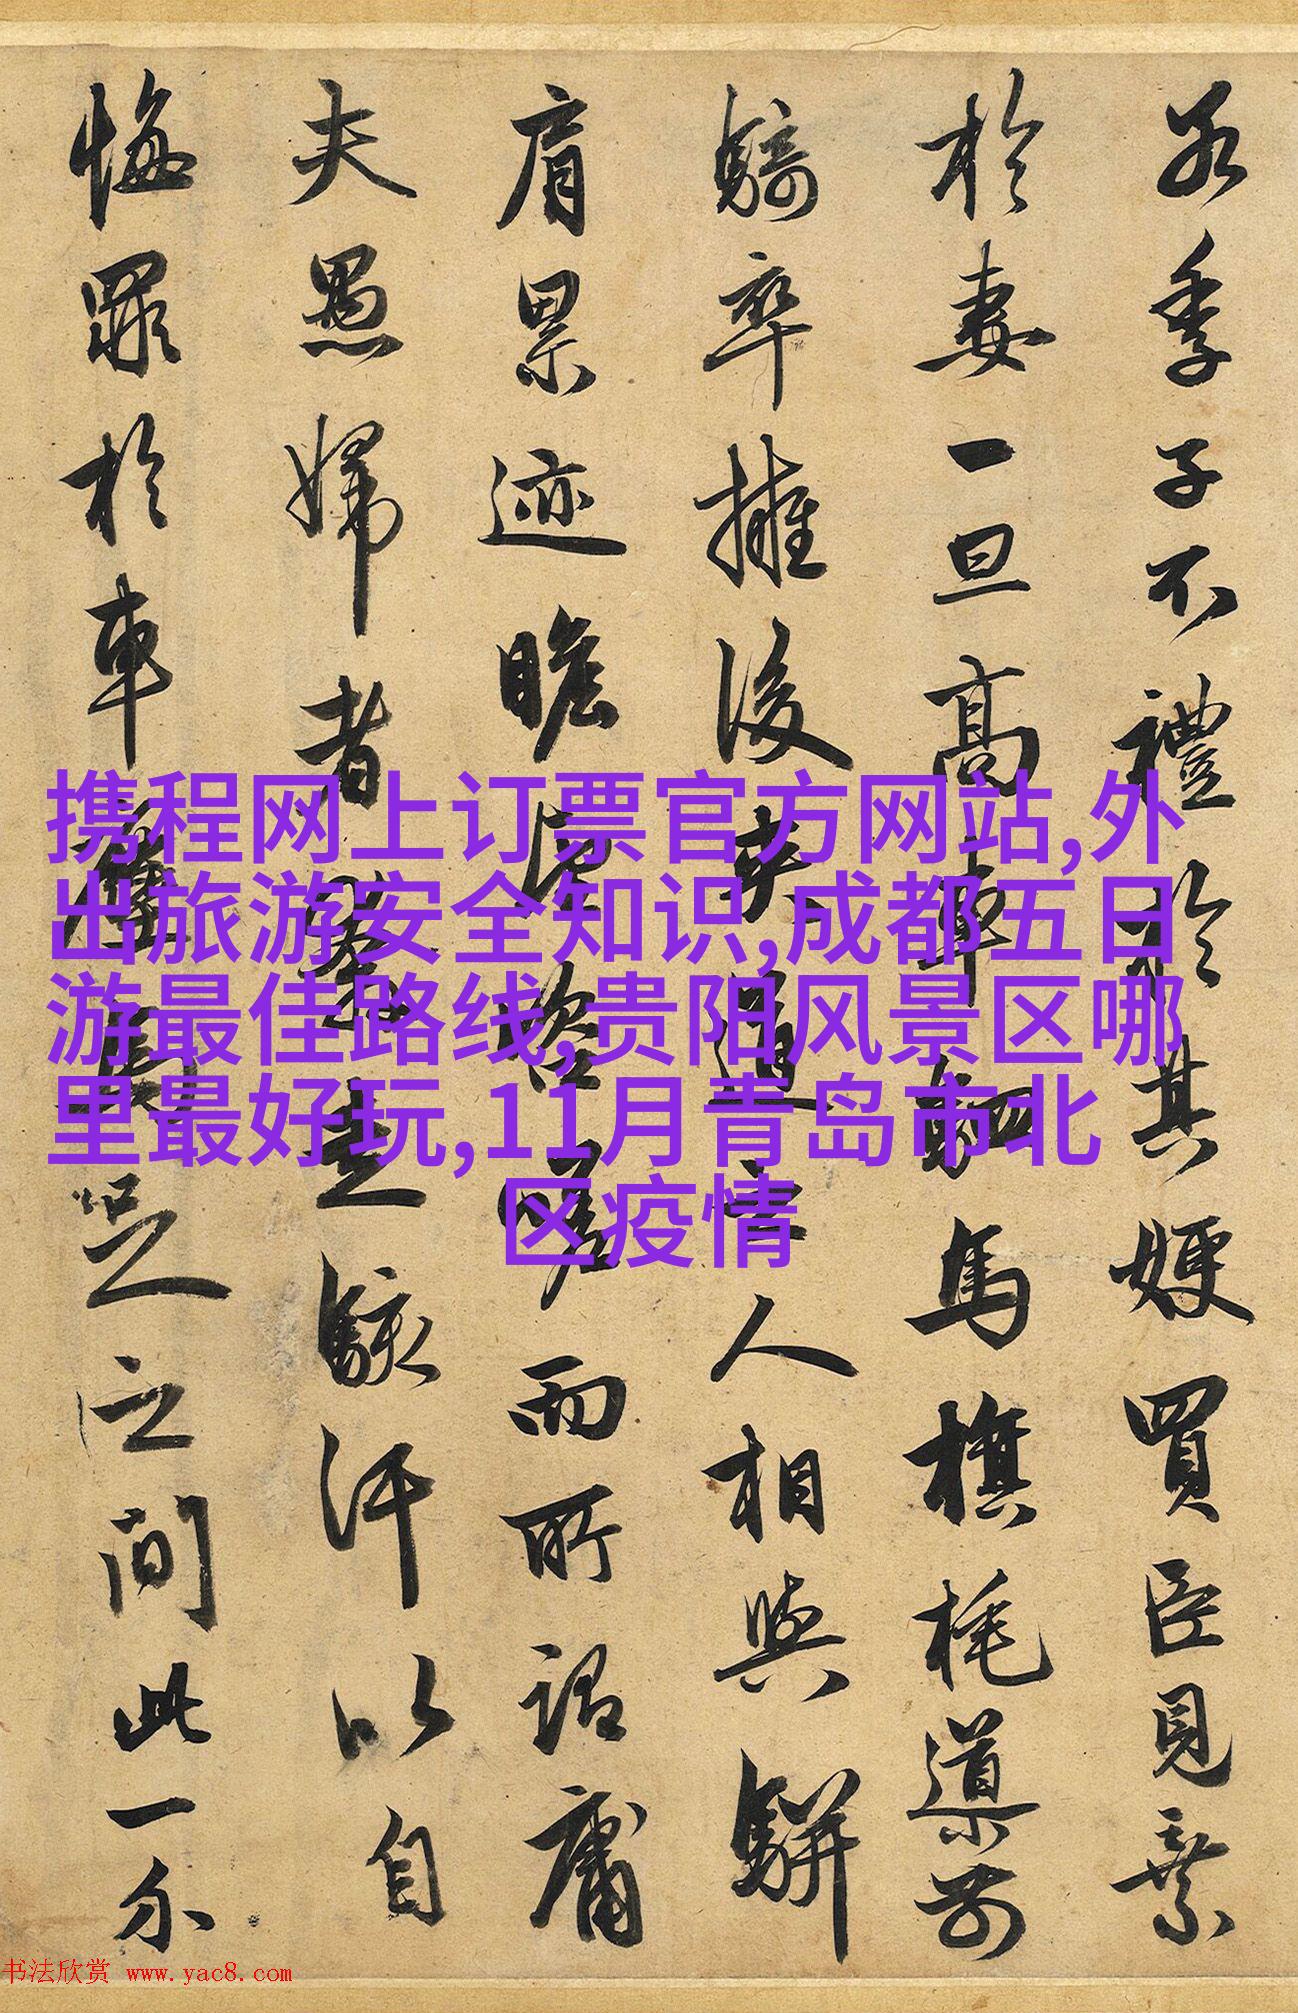 若季子不禮於其嫂買臣見棄
於妻一旦高車駟馬旗旄導前
騎卒擁後夾道之人相與駢
肩累迹瞻望咨嗟而所謂庸
夫愚婦者奔走駭汗以自
悔罪於車塵馬足之間此一介
携程网上订票官方网站,外
出旅游安全知识,成都五日
游最佳路线,贵阳风景区哪
里最好玩,11月青岛市北
区疫情
书法欣赏 www.yac8.com